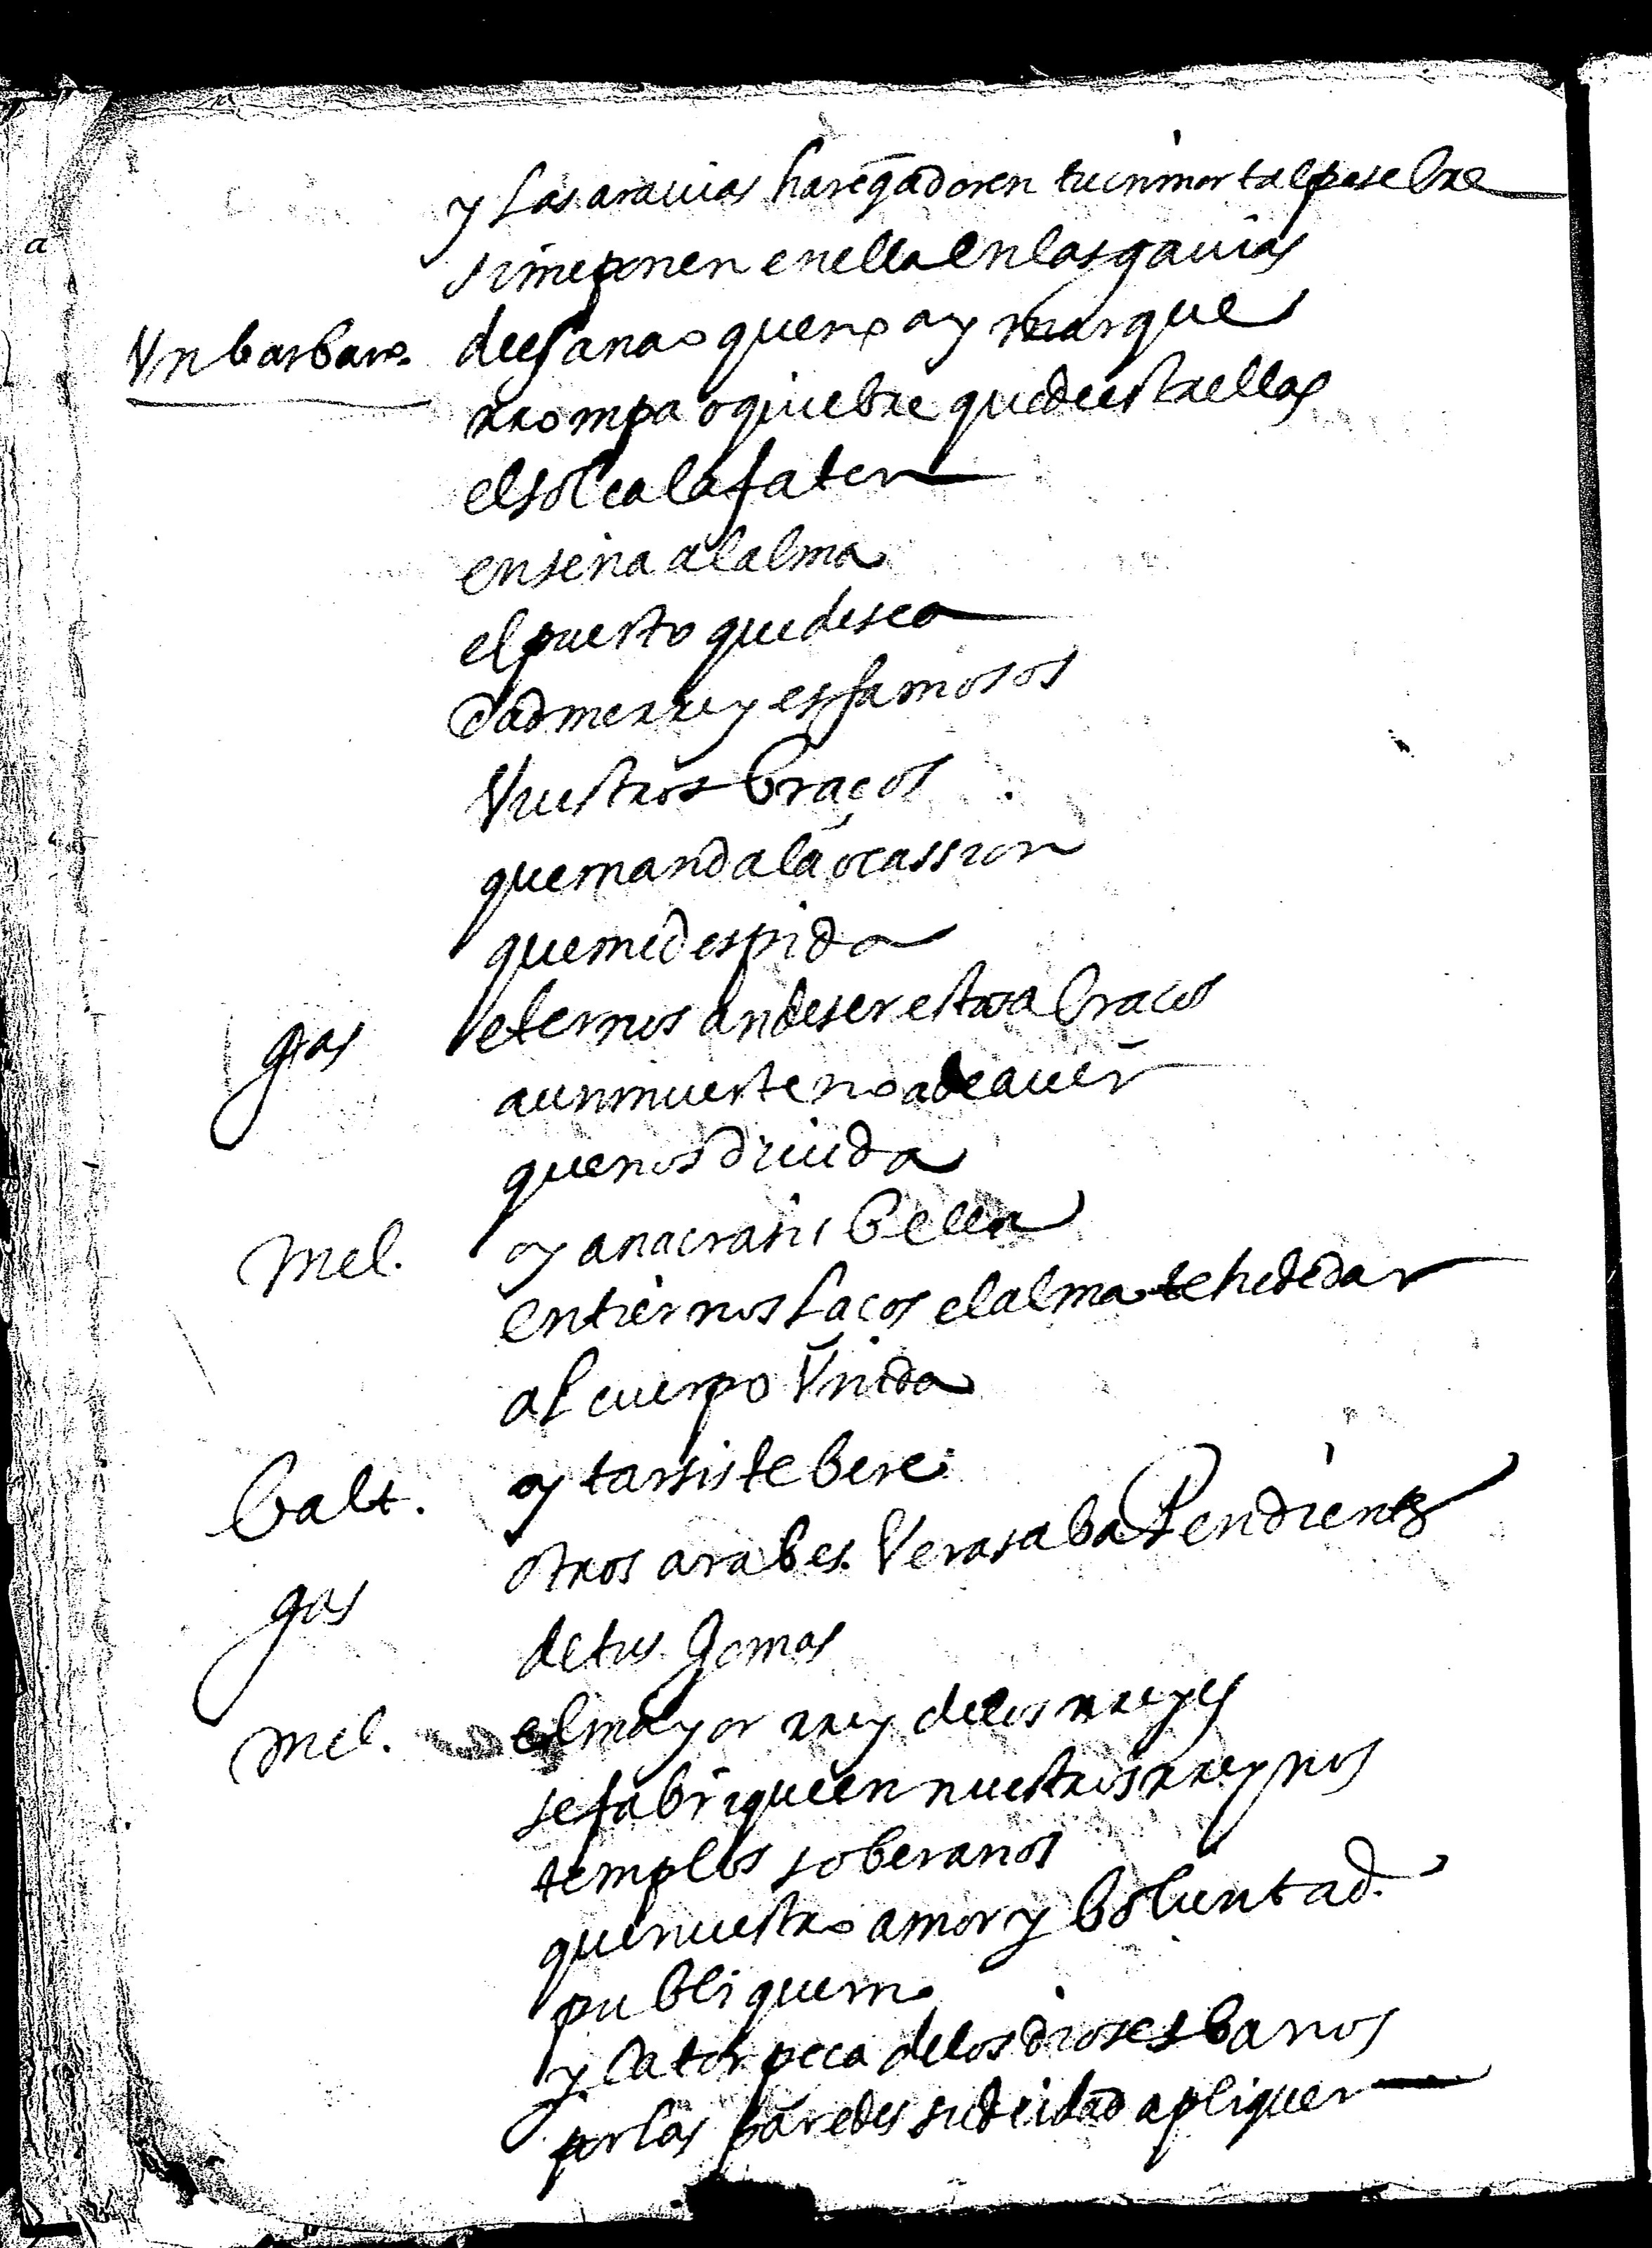 y las arauias hareq̃ adoren tu inmortal pesebre
si me ponen en ella en las gauias
Vn barbaro. de esa nao que no ay mar que
rrompa o quiebre que de estrellas
el sol calafaten
enseña al alma
el puerto que desea
dadme rreyes famosos
Vuestros braços
que manda la ocassion
que me despida
gas eternos an de ser estos abraços
aun muerte no a de auer
que nos diuida
Mel. oy anacrasis bella
en tiernos laços el alma te he de dar
al cuerpo Vnida
balt. oy tarsis te bere
gas otros arabes. Veras aba Pendientes
de tus gomas
Mel. el mayor rrey de los rreyes
se fabriquen en nuestros rreynos
templos soberanos
que nuestro amor y boluntad.
publiquem
y la torpeça de los dioses banos
por las paredes su deidad apliquen